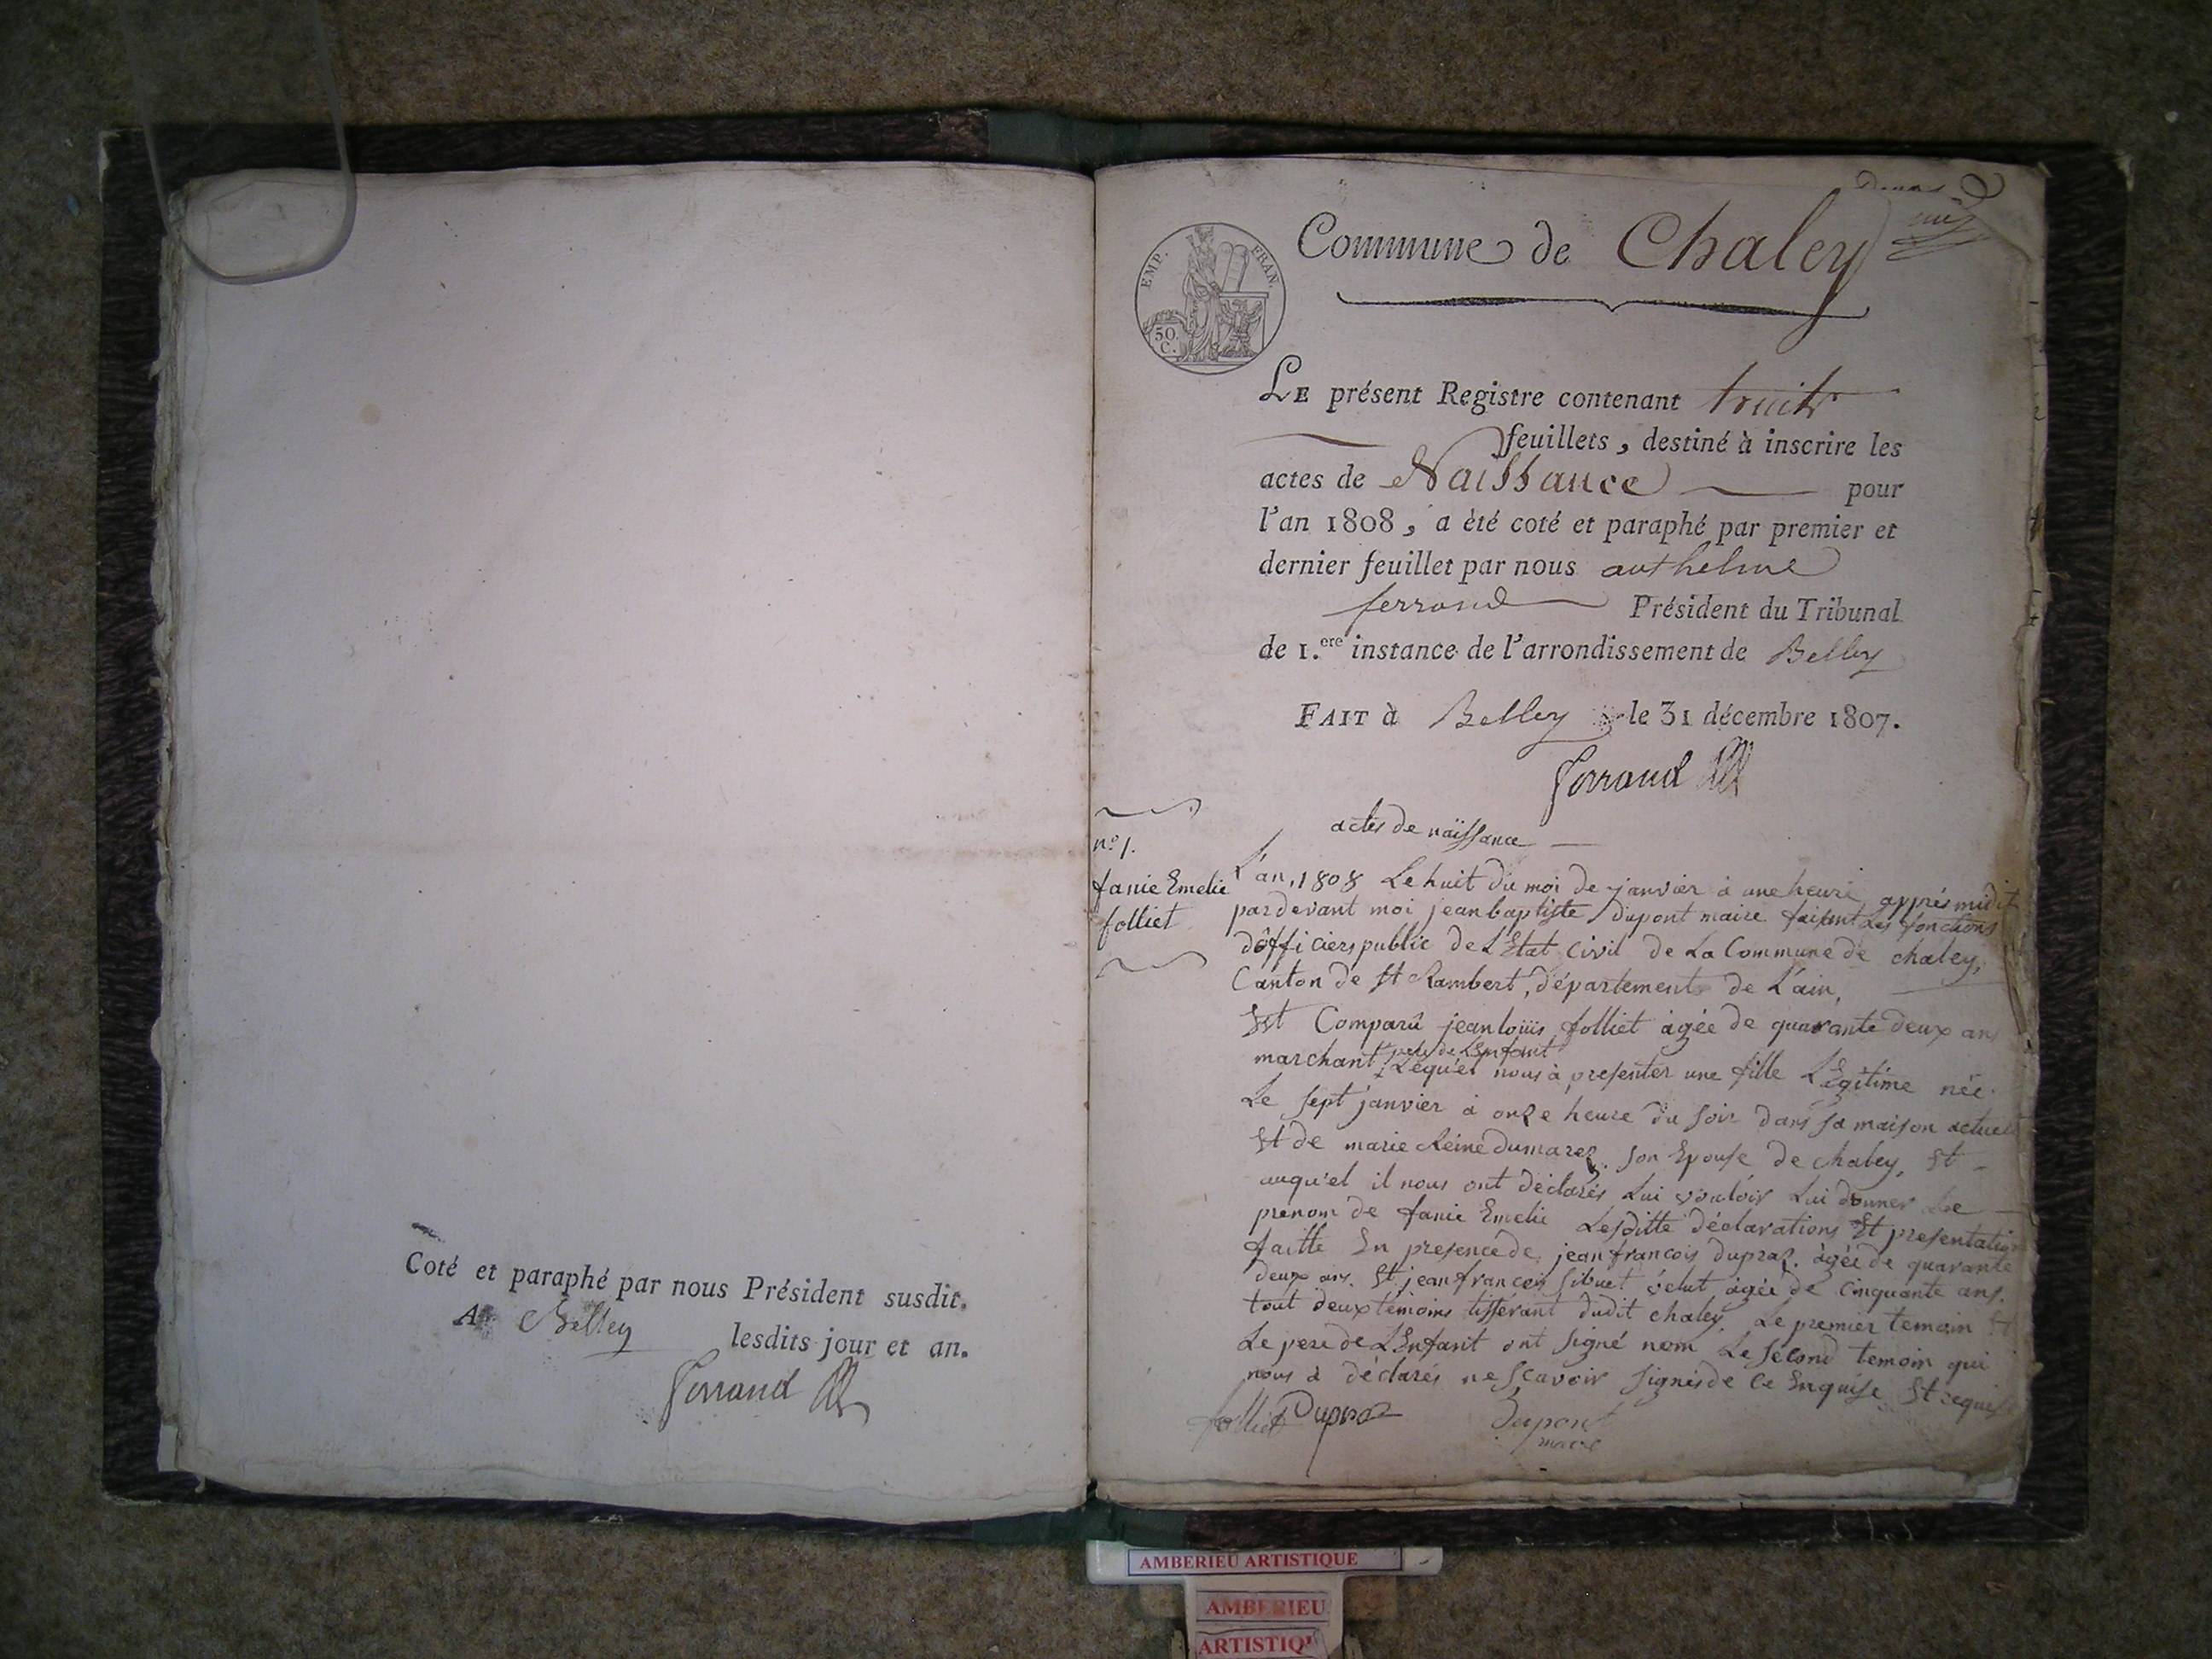 Coté et paraphé par nous Président susdit.
A Belley lesdits jour et an.
Ferrand
EMP. FRAN.
50
C.
Commune de Chaley
LE présent Registre contenant
feuillets, destiné à inscrire les
actes de Naissance pour
l'an 1808, a èté coté et paraphé par premier et
dernier feuillet par nous anthelme
ferrand Président du Tribunal
de 1.ere instance de l'arrondissement de Belley
FAIT à Belley le 31 décembre 1807.
Ferrand
actes de naissance
n.o 1.
fanie Emelie
folliet
L'an, 1808 Le huit du moi de janvier à une heure apprés midit
pardevant moi jean baptiste dupont maire faisent Les fonctions
d'officiers public de L'Etat civil de La Commune de chaley,
Canton de St Rambert, département de L'ain,
Est Comparû jean loüis folliet agée de quarante deux ans
marchant pere de L'Enfant Lequ'el nous à presenter une fille Légitime née
Le sept janvier à onze heure du soir dans sa maison actuel
Et de marie Reine dumarez. son Epouse de chaley, Et
auqu'el il nous ont déclarés Lui vouloir Lui donner Le
prenom de fanie Emelie Lesditte déclarations Et presentation
faitte En presence de jean francois dupraz. àgée de quarante
deux ans. Et jean francois sibuet àgée de cinquante ans.
tout deux témoins dudit chaley Le premier temoin Et
Le pere de L'Enfant ont signé nom Le second temoin qui
nous à déclarés ne scavoir signés de ce Enquise Et requise
folliet Dupraz Dupont
maire
AMBERIEU ARTISTIQUE
AMBERIEU
ARTISTIQU